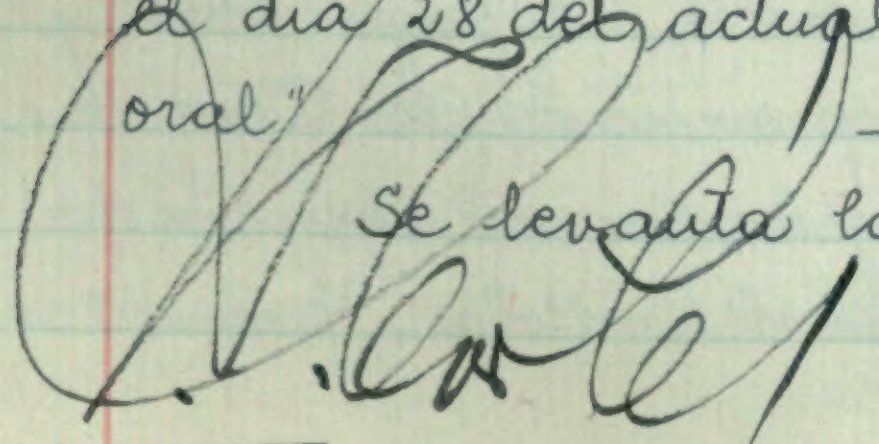 el dia 28 del actual
oral"
Se levanta